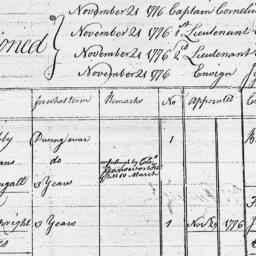 November 21 1776 Captain Corneliu
November 21 1776 1st Lieutenant
November 21 1776 2d Lieutenant
November 21 1776 Ensign
ioned
for what term Remarks No Appointed
by During war 1
ans do
ugall 3 Years to March
wright 3 Years 1 Nov 29 1776
es